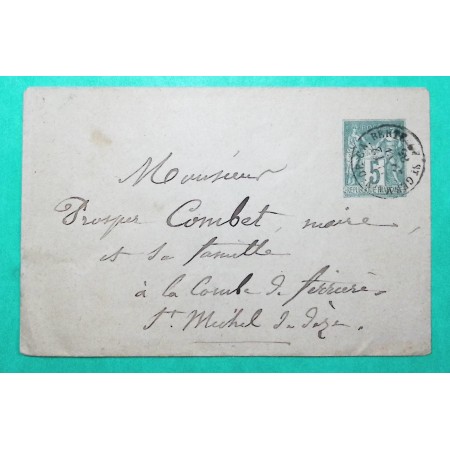 Monsieur
Prosper Combet, maire
et sa famille
à la Combe de ferrière
St Michel de dèze
5